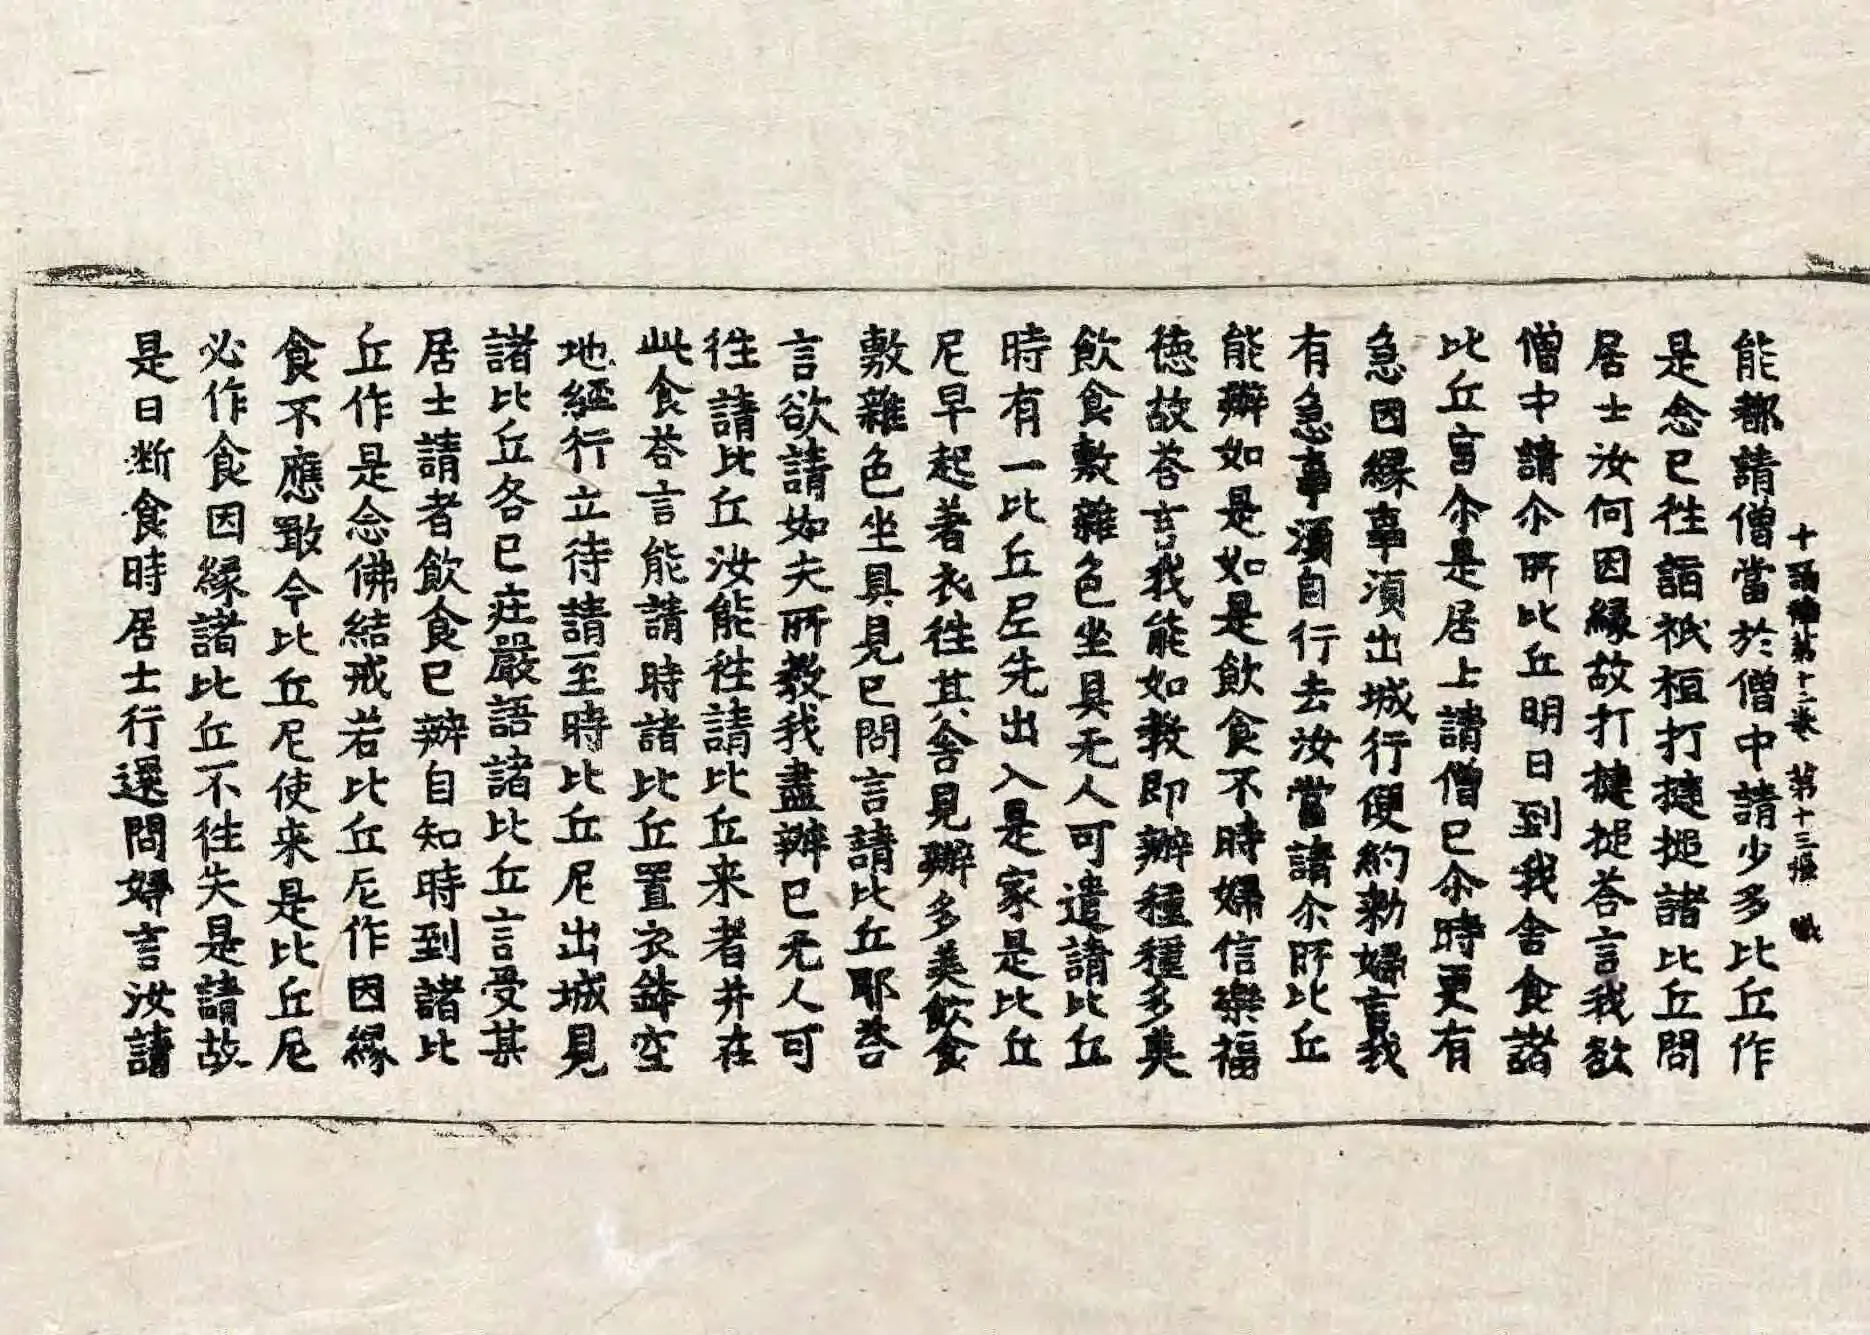 十誦律第十二卷 第十三張 職
能都請僧當於僧中請少多比丘作
是念已徃詣祇桓打揵搥諸比丘問
居士汝何因縁故打揵搥荅言我欲
僧中請尒所比丘明日到我舍食諸
比丘言尒是居士請僧已尒時更有
急因縁事湏出城行便約勑婦言我
有急事湏自行去汝當請尒所比丘
能辦如是如是飲食不時婦信樂福
徳故荅言我能如教即辦種種多美
飲食敷雜色坐具无人可遣請比丘
時有一比丘尼先出入是家是比丘
尼早起著衣徃其舍見辦多美飲食
敷雜色坐具見已問言請比丘耶荅
言欲請如夫所教我盡辦已无人可
徃請比丘汝能徃請比丘来者并在
此食荅言能請時諸比丘置衣鉢空
地經行立待請至時比丘尼出城見
諸比丘各已庄嚴語諸比丘言受某
居士請者飲食已辦自知時到諸比
丘作是念佛結戒若比丘尼作因縁
食不應噉今比丘尼使来是比丘尼
必作食因縁諸比丘不徃失是請故
是日断食時居士行還問婦言汝請